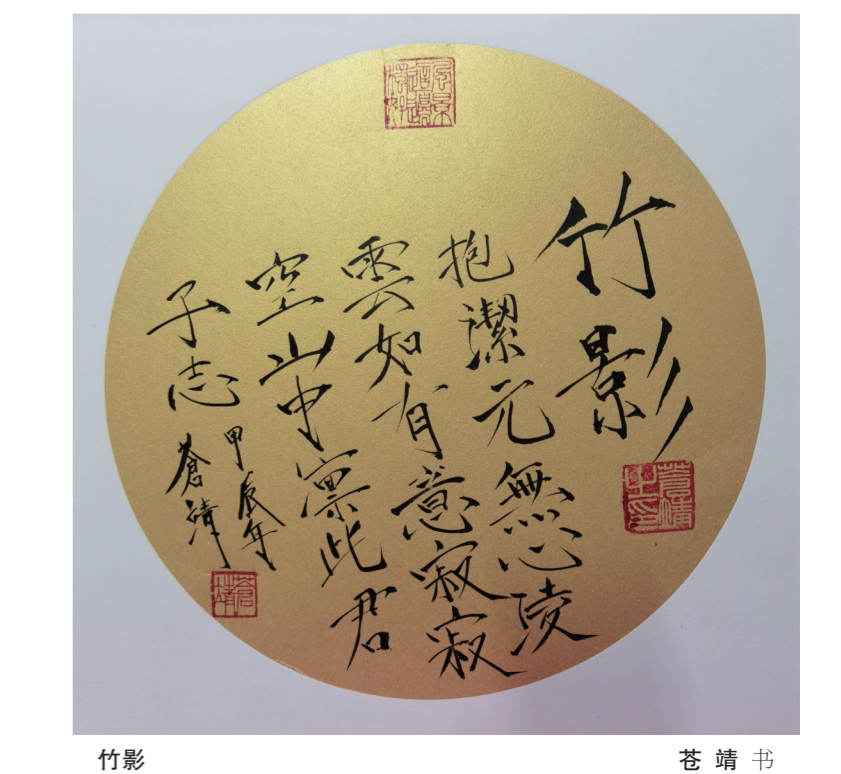 竹影
抱潔元無心陵
雲如有意寂寂
空山中凛此君
子志
甲辰年
蒼靖
蒼靖之印
蒼靖
竹影
苍 靖 书